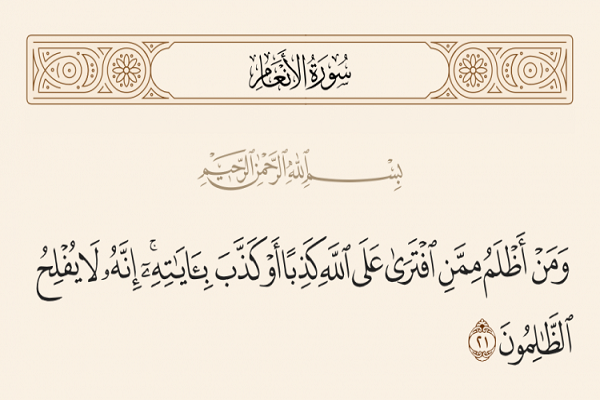 سُورَةُ الأَنْعَامِ
بِسْمِ ٱللَّهِ ٱلرَّحْمَٰنِ ٱلرَّحِيمِ
وَمَنْ أَظْلَمُ مِمَّنِ ٱفْتَرَىٰ عَلَى ٱللَّهِ كَذِبًا أَوْ كَذَّبَ بِـَٔايَـٰتِهِۦٓ ۚ إِنَّهُۥ لَا يُفْلِحُ
ٱلظَّـٰلِمُونَ ٢١